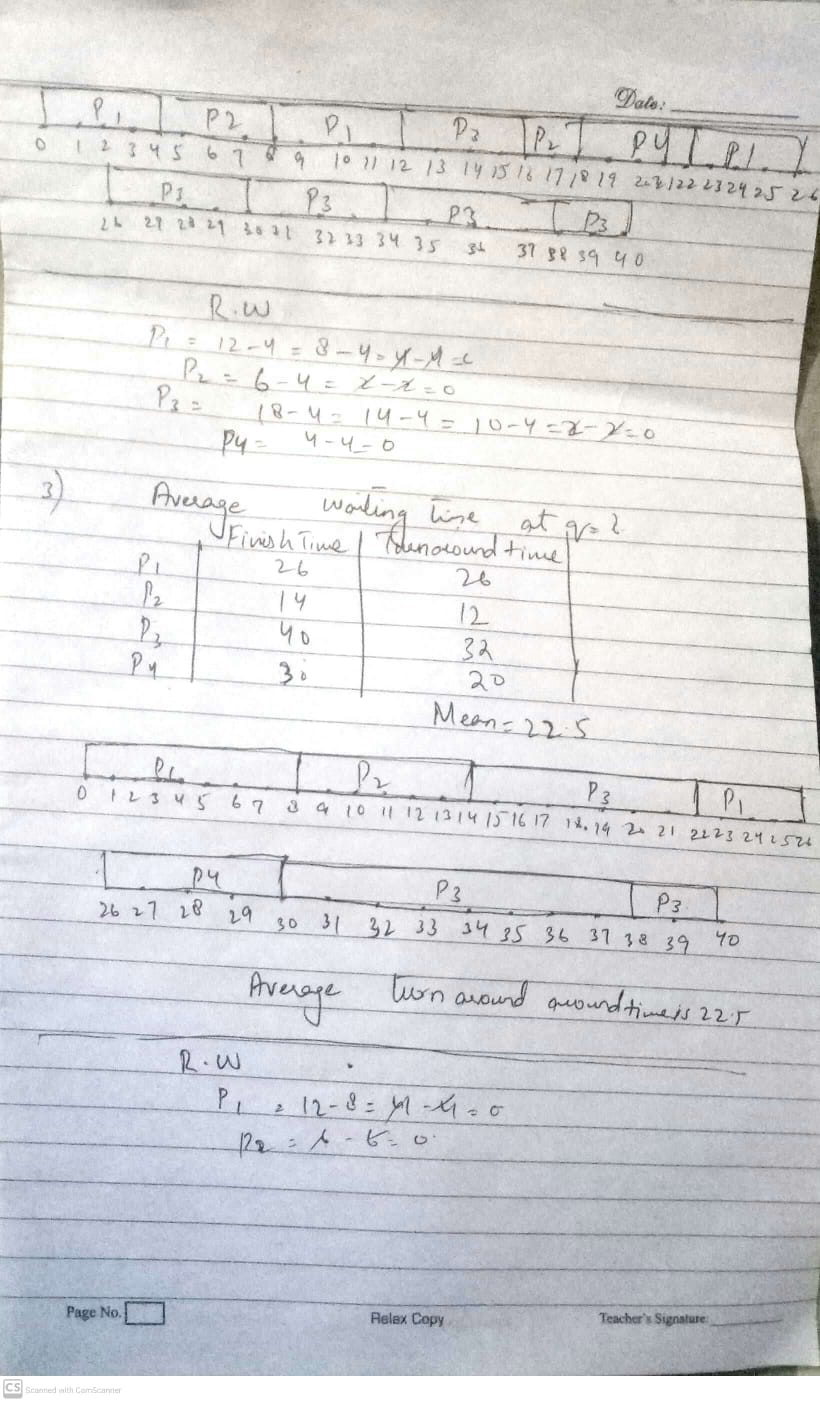 Date:
P1 P2 P1 P3 P2 P4 P1
0 1 2 3 4 5 6 7 8 9 10 11 12 13 14 15 16 17 18 19 20 21 22 23 24 25 26
P3 P3 P3 P3
26 27 28 29 30 31 32 33 34 35 36 37 38 39 40
R.W
P1 = 12-4 = 8-4 = 4-4 =
P2 = 6-4 = 2-2=0
P3 = 18-4= 14-4 = 10-4 = 2-2=0
P4= 4-4=0
3) Average waiting time at q=
Finish Time Turnaround time
P1 26 26
P2 14 12
P3 40 32
P4 30 20
Mean= 22.5
P1 P2 P3 P1
0 1 2 3 4 5 6 7 8 9 10 11 12 13 14 15 16 17 18 19 20 21 22 23 24 25 26
P4 P3 P3
26 27 28 29 30 31 32 33 34 35 36 37 38 39 40
Average turn around around time is 22.5
R.W
P1 = 12-8= 4-4=0
P2 = 6-6=0
Page No.
Relax Copy
Teacher's Signature:
CS Scanned with CamScanner